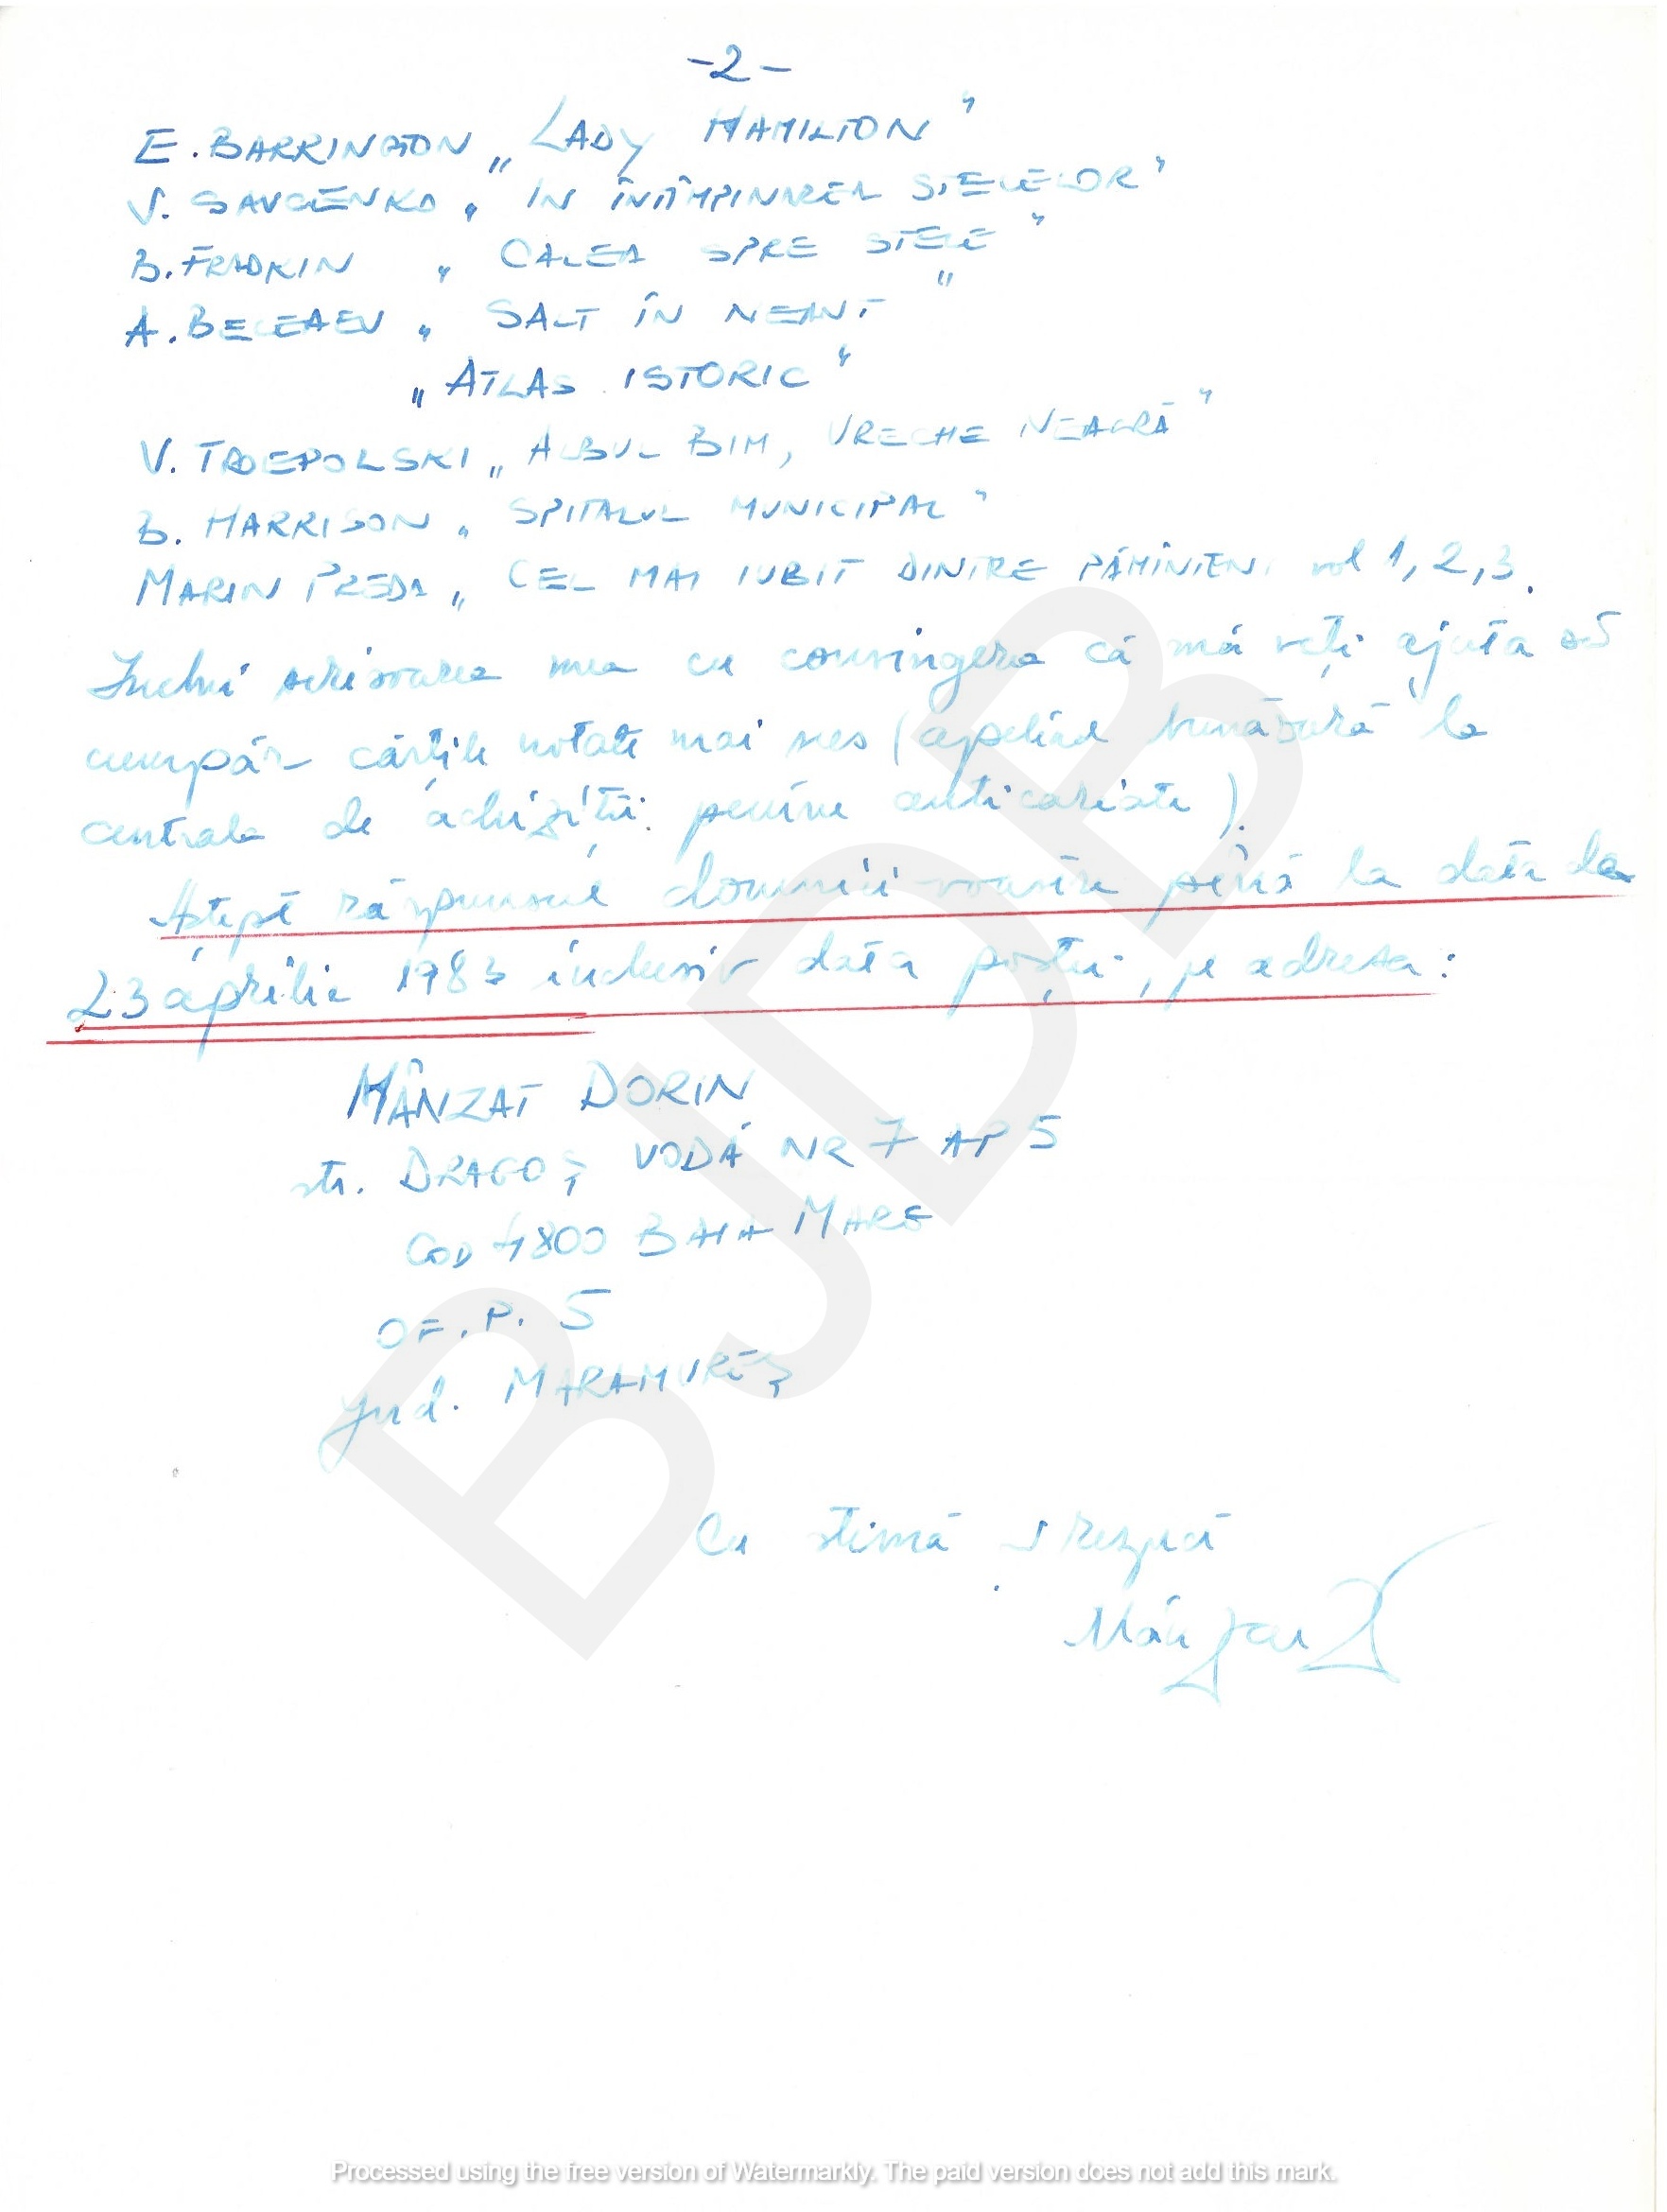 -2-
E. BARRINGTON „LADY HAMILTON"
V. SAVCENKO „IN ÎNTÎMPINAREA STELELOR"
B. FRADKIN „CALEA SPRE STELE"
A. BELEAEV „SALT ÎN NEANT"
„ATLAS ISTORIC"
V. TROEPOLSKI „ALBUL BIM, URECHE NEAGRĂ"
B. HARRISON „SPITALUL MUNICIPAL"
MARIN PREDA „CEL MAI IUBIT DINTRE PĂMÎNTENI vol 1, 2, 3.
Închei scrisoarea mea cu convingerea că mă veți ajuta să
cumpăr cărțile notate mai sus (apelînd bunăoară la
centrala de achiziții pentru anticariate).
Aștept răspunsul domniei-voastre pînă la data de
23 aprilie 1983 inclusiv data poștei, pe adresa:
MÂNZAT DORIN
str. DRAGOȘ VODĂ NR 7 AP 5
COD 4800 BAIA MARE
OF. P. 5
jud. MARAMUREȘ
Cu stimă și respect
Mânzat
BJDB
Processed using the free version of Watermarkly. The paid version does not add this mark.